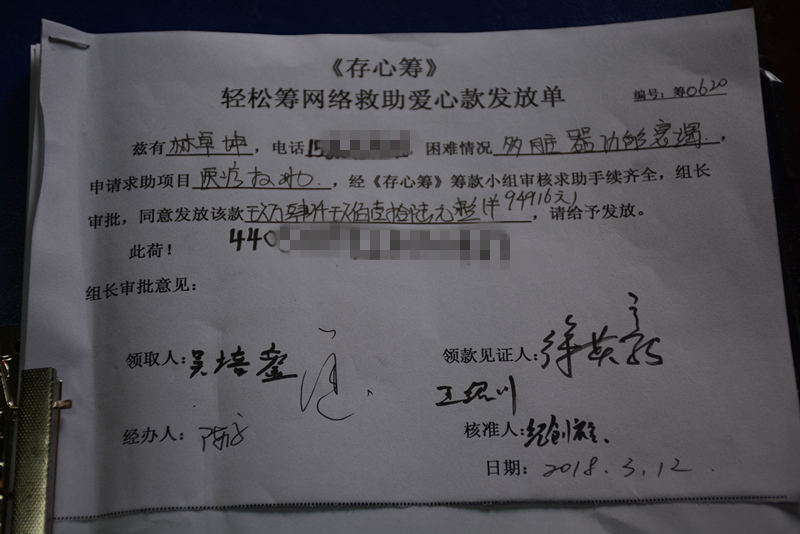 《存心筹》
轻松筹网络救助爱心款发放单
编号：筹0620
兹有 林卓坤，电话 15 困难情况 多脏器功能衰竭，
申请求助项目 医疗救助，经《存心筹》筹款小组审核求助手续齐全，组长
审批，同意发放该款 玖万肆仟玖佰壹拾陆元整(¥94916元)，请给予发放。
此荷！ 440
组长审批意见：
领取人：吴培銮
领款见证人：徐英
王绍川
经办人：陈
核准人：纪创雄
日期：2018.3.12